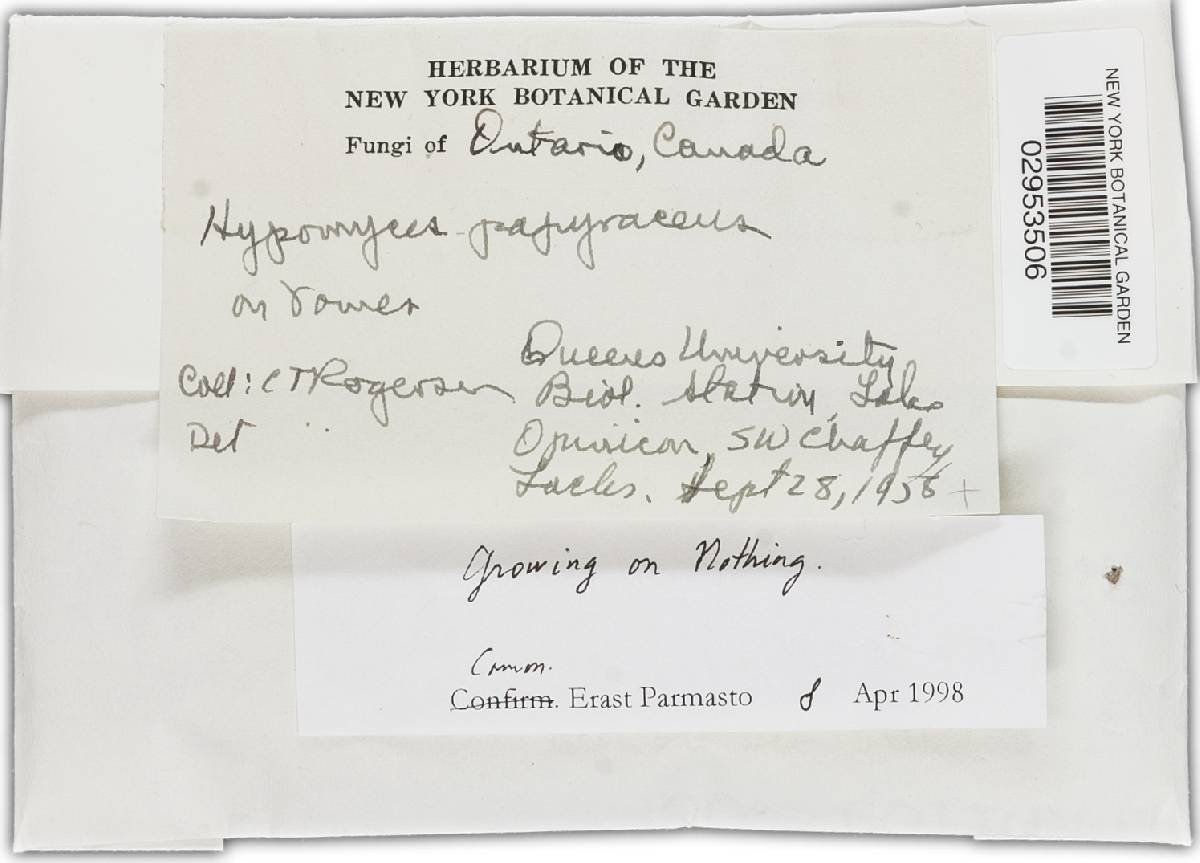 HERBARIUM OF THE
NEW YORK BOTANICAL GARDEN
Fungi of Ontario, Canada
Hypomyces papyraceus
on
Queens University
Coll: CTRogerson Biol. Station, Lake
Det " Opinicon, SW Chaffey
Locks. Sept 28, 1956 +
Growing on Nothing.
Comm.
Confirm. Erast Parmasto 8 Apr 1998
NEW YORK BOTANICAL GARDEN
02953506